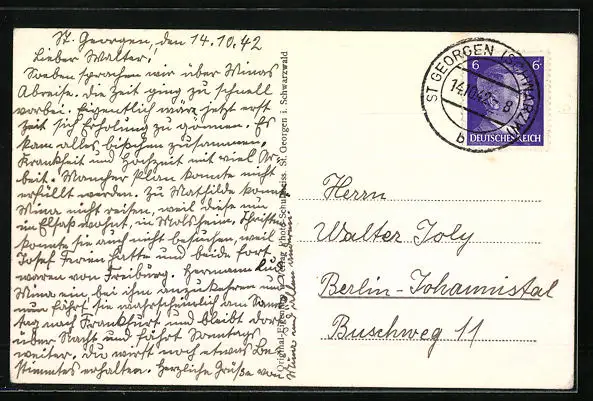 St. Georgen, den 14.10.42
Lieber Walter!
Soeben sprachen wir über Minas
Abreise. Die Zeit ging zu schnell
vorbei. Eigentlich wär jetzt erst
Zeit sich Erholung zu gönnen. Es
kam alles bißchen zusammen,
Krankheit und Hochzeit mit viel Ar-
beit. Mancher Plan konnte nicht
erfüllt werden. Zu Mathilde konnte
Mina nicht reisen, weil diese nun
im Elsaß wohnt, in Molsheim. Christine
konnte sie auch nicht besuchen, weil
Josef Ferien hatte und beide fort
waren von Freiburg. Hermann lud
Mina ein bei ihm anzukehren und
nun fährt sie wahrscheinlich am Sams-
tag nach Frankfurt und bleibt dort
über Nacht und fährt Sonntags
weiter. Du wirst noch etwas Be-
stimmtes erhalten. Herzliche Grüße von
Mina und
Original-Eigentum u. Verlag Photo-Schultheiss, St. Georgen i. Schwarzwald
ST GEORGEN (SCHWARZW)
14.10.42
8
b
6 6
DEUTSCHES REICH
Herrn
Walter Joly
Berlin-Johannistal
Buschweg 11